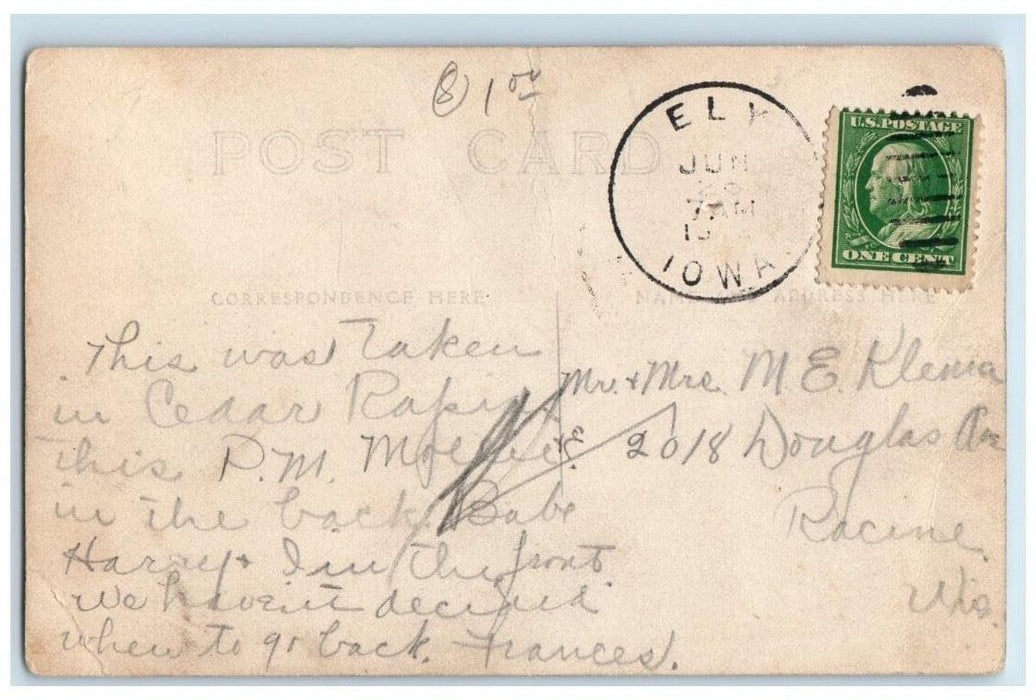 ⑧ 1 00
POST CARD
ELY
JUN
7 AM
19
IOWA
U.S. POSTAGE
ONE CENT
CORRESPONDENCE HERE
NAME AND ADDRESS HERE
This was taken
in Cedar Rapids
this P.M. Mollie
in the back Babe
Harry & I in the front.
We haven't decided
when to go back. Frances.
Mr. & Mrs. M. E. Klema
2018 Douglas Av
Racine
Wis.